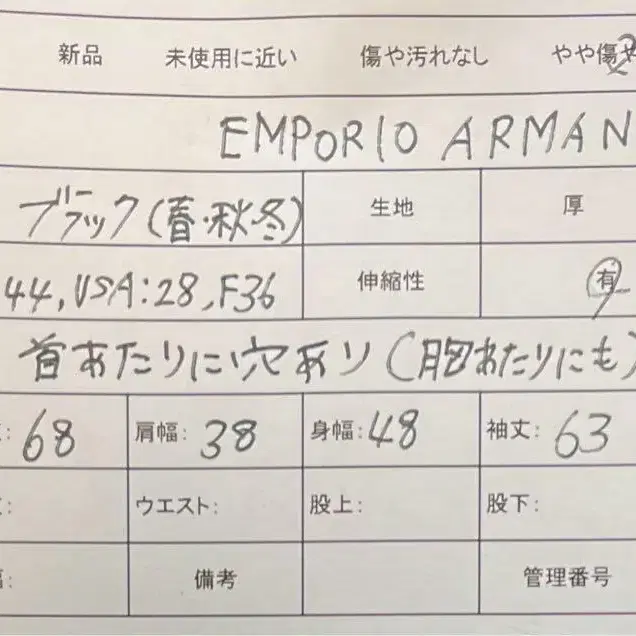 新品 未使用に近い 傷や汚れなし やや傷や
EMPORIO ARMAN
ブラック(春・秋冬) 生地 厚
44,USA:28,F36 伸縮性 有
首あたりに穴あり(胸あたりにも)
: 68 肩幅: 38 身幅: 48 袖丈: 63
: ウエスト: 股上: 股下:
: 備考 管理番号